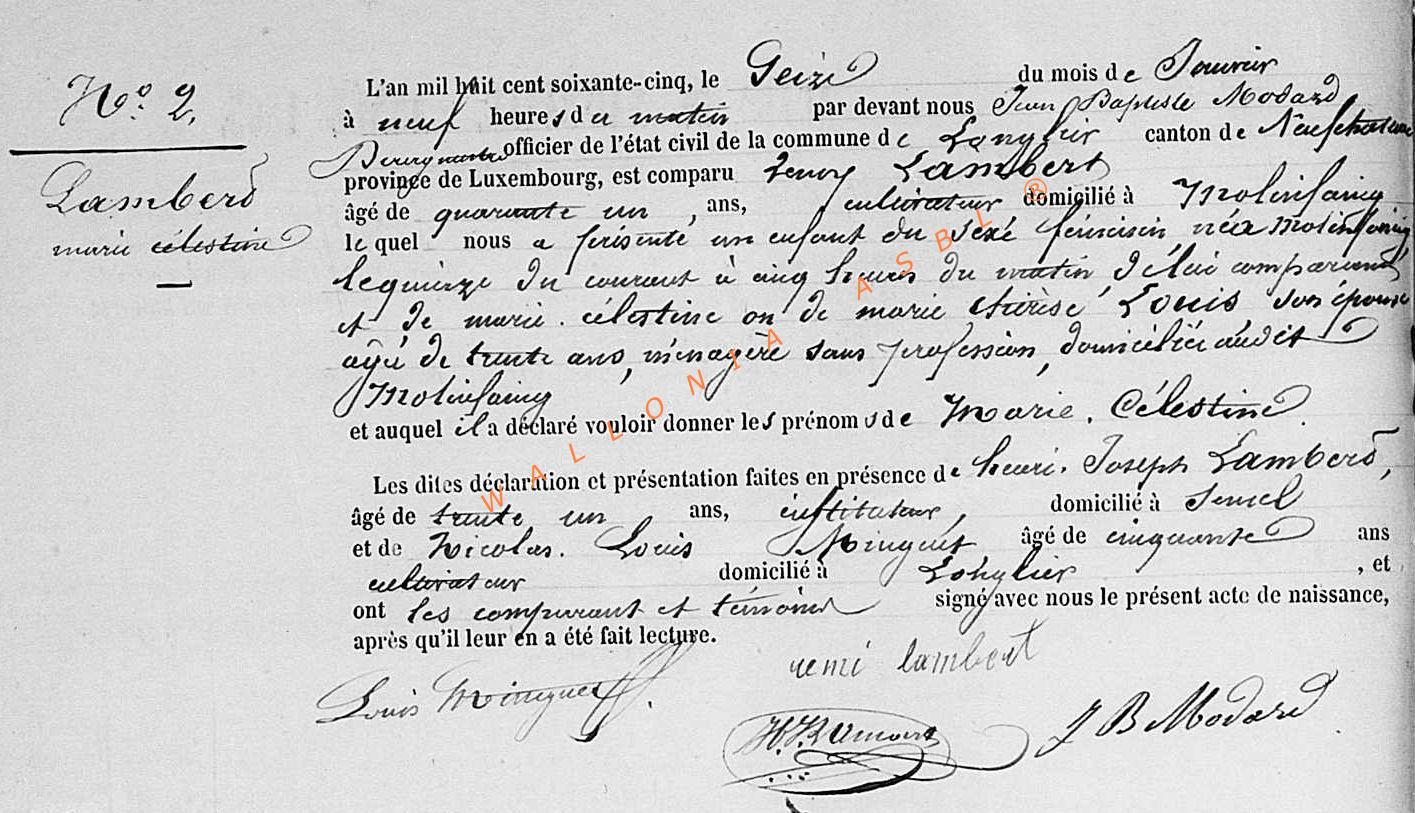 N.o 2.
Lambert
marie célestine
L'an mil huit cent soixante-cinq, le Seize du mois de Janvier
à neuf heures du matin par devant nous Jean Baptiste Modard
Bourgmestre officier de l'état civil de la commune de Longlier canton de Neufchateau
province de Luxembourg, est comparu Lambert
âgé de quarante un, ans, cultivateur domicilié à Molinfaing
le quel nous a présenté un enfant du sexe féminin née a Molinfaing,
le quinze du courant à cinq heures du matin, de lui comparant
et de marie. célestine ou de marie thérèse Louis son épouse
agée de trente ans, ménagère sans profession, domiciliée audit
Molinfaing
et auquel il a déclaré vouloir donner les prénoms de Marie. Célestine
Les dites déclaration et présentation faites en présence de henri. Joseph Lambert,
âgé de trente un ans, instituteur, domicilié à Semel
et de Nicolas. Louis Minguet âgé de cinquante ans
cultivateur domicilié à Longlier, et
ont les comparant et témoins signé avec nous le présent acte de naissance,
après qu'il leur en a été fait lecture.
Louis Minguet
remi lambert
J B Modard
WALLONIA ASBL ®